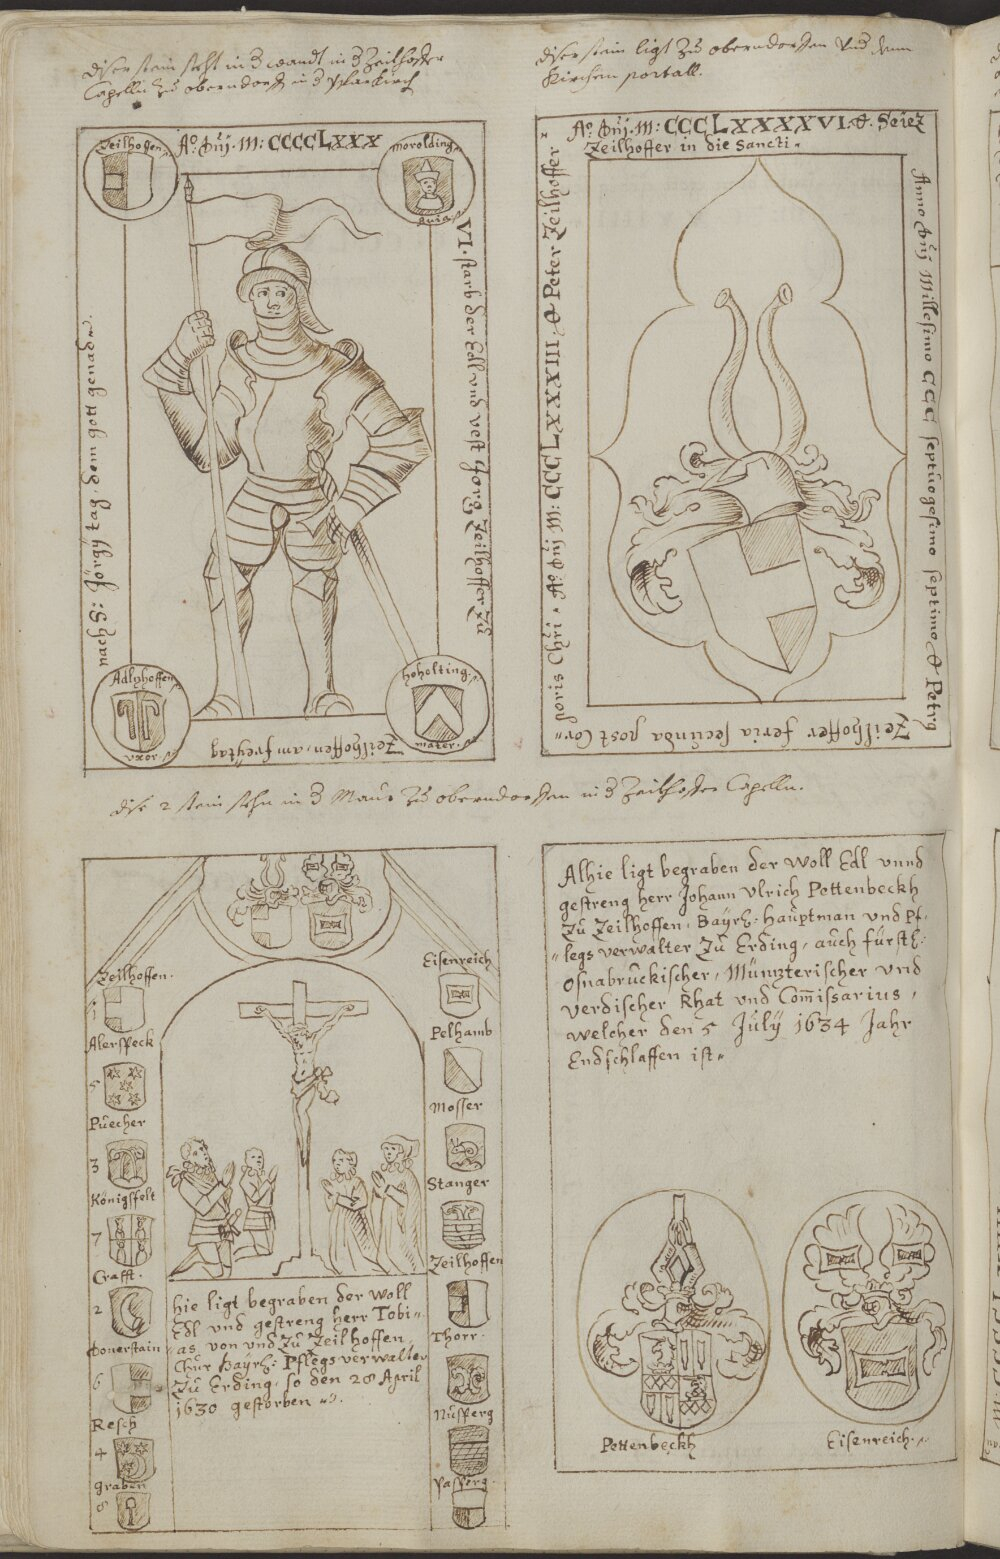 diser stain steht in d wandt in d Zeilhoffer
Capelln zu oberndorff in d Pfarkirch
Zeilhoffen
Ao. Dnj. M: CCCCLXXX
moroldinge
auia
VI. starb der Edl vnd vest Jorg Zeilhoffer Zu
Zeilhoffen, am freÿtag
nach S: Jörgÿ tag, dem gott genad
Adlzhoffen
vxor
hoholting
mater
diser stain ligt Zu oberndorffen Vnd dem
Kirchen portall.
Ao. Dnj. M: CCCLXXXXVI. & Seiez
Zeilhoffer in die Sancti
Anno Dnj Millesimo CCC septuogesimo septimo & Petrg
Zeilhoffer feria secunda post Cor
poris Chri. Ao. Dnj M: CCCLXXXXIII, & Peter Zeilhoffer
dise 2 stain stehn in d Maur Zu oberndorffen in d Zeilhoffer Capelln.
Zeilhoffen.
1
Alerspeck
5
Puecher
3
Königsfelt
7
Crafft.
2
Donerstain
6
Resch
4
graben
8
Eisenreich
Pelhamb
Mosser
Stanger
Zeilhoffen
Thorr.
Nusperg
Passperg.
hie ligt begraben der Woll
Edl vnd gestreng herr Tobi-
as von vnd Zu Zeilhoffen,
Chur Bayrh: Pflegs verwalter
Zu Erding, so den 28 April
1630 gestorben
Alhie ligt begraben der Woll Edl vnnd
gestreng herr Johann Vlrich Pottenbeckh
Zu Zeilhoffen, Baÿrh: Hauptman vnd Pf-
legs verwalter Zu Erding, auch fürstl:
Osnabruckischer, Münzterischer vnd
verdischer Rhat vnd Com̄issarius,
welcher den 5 Julÿ 1634 Jahr
Endschlaffen ist
Pottenbeckh
Eisenreich.